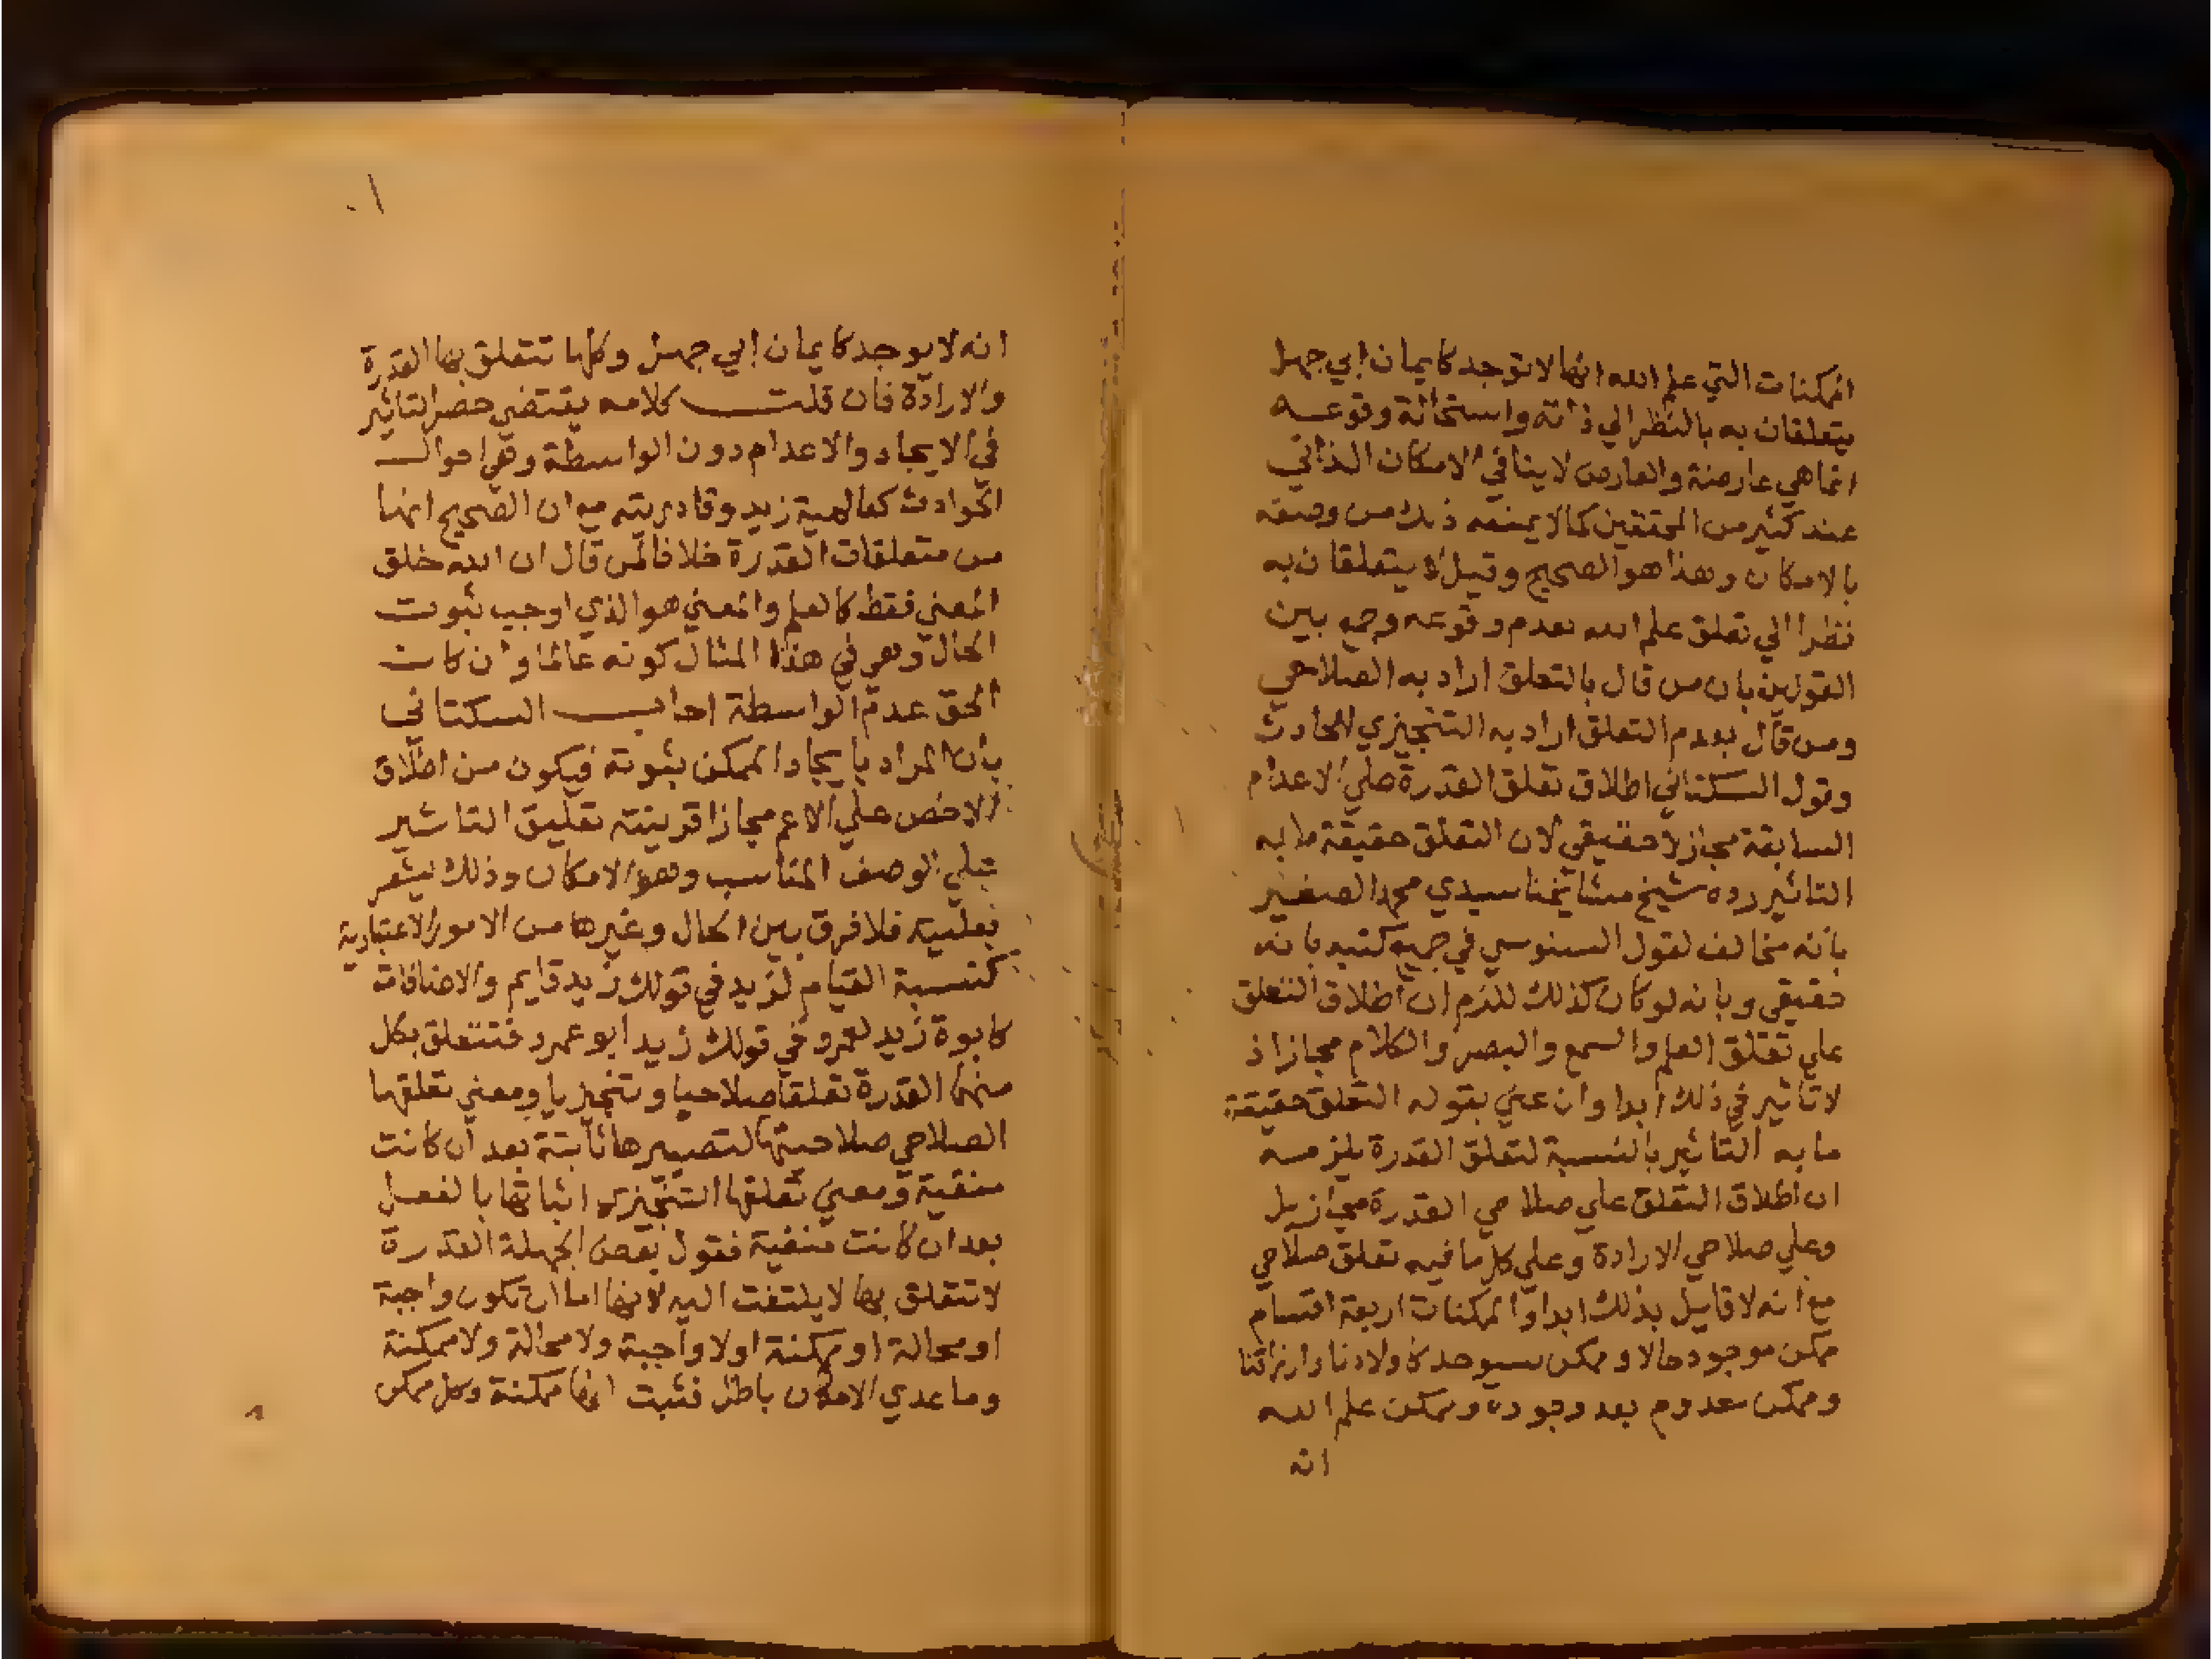 الممكنات التي علم الله انها لا توجد كايمان ابي جهل
يتعلقان به بالنظر الي ذاته واستحالة وقوعه
انما هي عارضة والعارض لا ينافي الامكان الذاتي
عند كثير من المحققين كما لا يمنعه ذلك من وصفه
بالامكان وهذا هو الصحيح وقيل لا يتعلقان به
نظرا الي تعلق علم الله بعدم وقوعه وجمع بين
القولين بان من قال بالتعلق اراد به الصلاحي
ومن قال بعدم التعلق اراد به التنجيزي الحادث
وقول السكتاني اطلاق تعلق القدرة علي الاعدام
السابقة مجاز لا حقيقي لان التعلق حقيقة ما به
التاثير رده شيخ مشايخنا سيدي محمد الصغير
بانه مخالف لقول السنوسي في جميع كتبه بانه
حقيقي وبانه لو كان كذلك للزم ان اطلاق التعلق
علي تعلق العلم والسمع والبصر والكلام مجاز اذ
لا تاثير في ذلك ابدا وان عني بقوله التعلق حقيقة
ما به التاثير بالنسبة لتعلق القدرة يلزمه
ان اطلاق التعلق علي صلاحي القدرة مجاز بل
وعلي صلاحي الارادة وعلي كل ما فيه تعلق صلاحي
مع انه لا قايل بذلك ابدا والممكنات اربعة اقسام
ممكن موجود حالا وممكن سيوجد كاولادنا وارزاقنا
وممكن معدوم بعد وجوده وممكن علم الله
انه
١٠
انه لا يوجد كايمان ابي جهل وكلها تتعلق بها القدرة
والارادة فان قلت كلامه يقتضي حصر التاثير
في الايجاد والاعدام دون الواسطة وهي احوال
الحوادث كعالمية زيد وقادريته مع ان الصحيح انها
من متعلقات القدرة خلافا لمن قال ان الله خلق
المعني فقط كالعلم والمعني هو الذي اوجب ثبوت
الحال وهو في هذا المثال كونه عالما وان كان
الحق عدم الواسطة اجاب السكتاني
بان المراد بايجاد الممكن ثبوته فيكون من اطلاق
الاخص علي الاعم مجازا قرينته تعليق التاثير
علي الوصف المناسب وهو الامكان وذلك يشعر
بعليته فلا فرق بين الحال وغيرها من الامور الاعتبارية
كنسبة القيام لزيد في قولك زيد قايم والاضافات
كابوة زيد لعمرو في قولك زيد ابو عمرو فتتعلق بكل
منهما القدرة تعلقا صلاحيا وتنجيزيا ومعني تعلقها
الصلاحي صلاحيتها لتصييرها ثابتة بعد ان كانت
منفية ومعني تعلقها التنجيزي اثباتها بالفعل
بعد ان كانت منفية فقول بعض الجهلة القدرة
لا تتعلق بها لا يلتفت اليه لانها اما ان تكون واجبة
او محالة او ممكنة او لا واجبة ولا محالة ولا ممكنة
وما عدي الامكان باطل فثبت انها ممكنة وكل ممكن